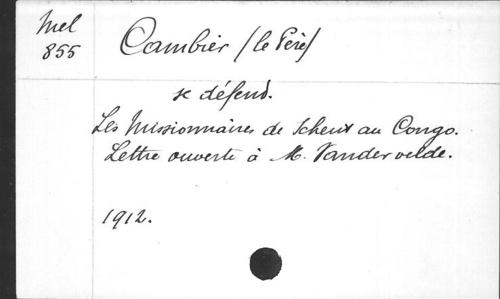 Mel
855
Cambier (le Père)
se défend.
Les Missionnaires de Scheut au Congo.
Lettre ouverte à M. Vandervelde.
1912.